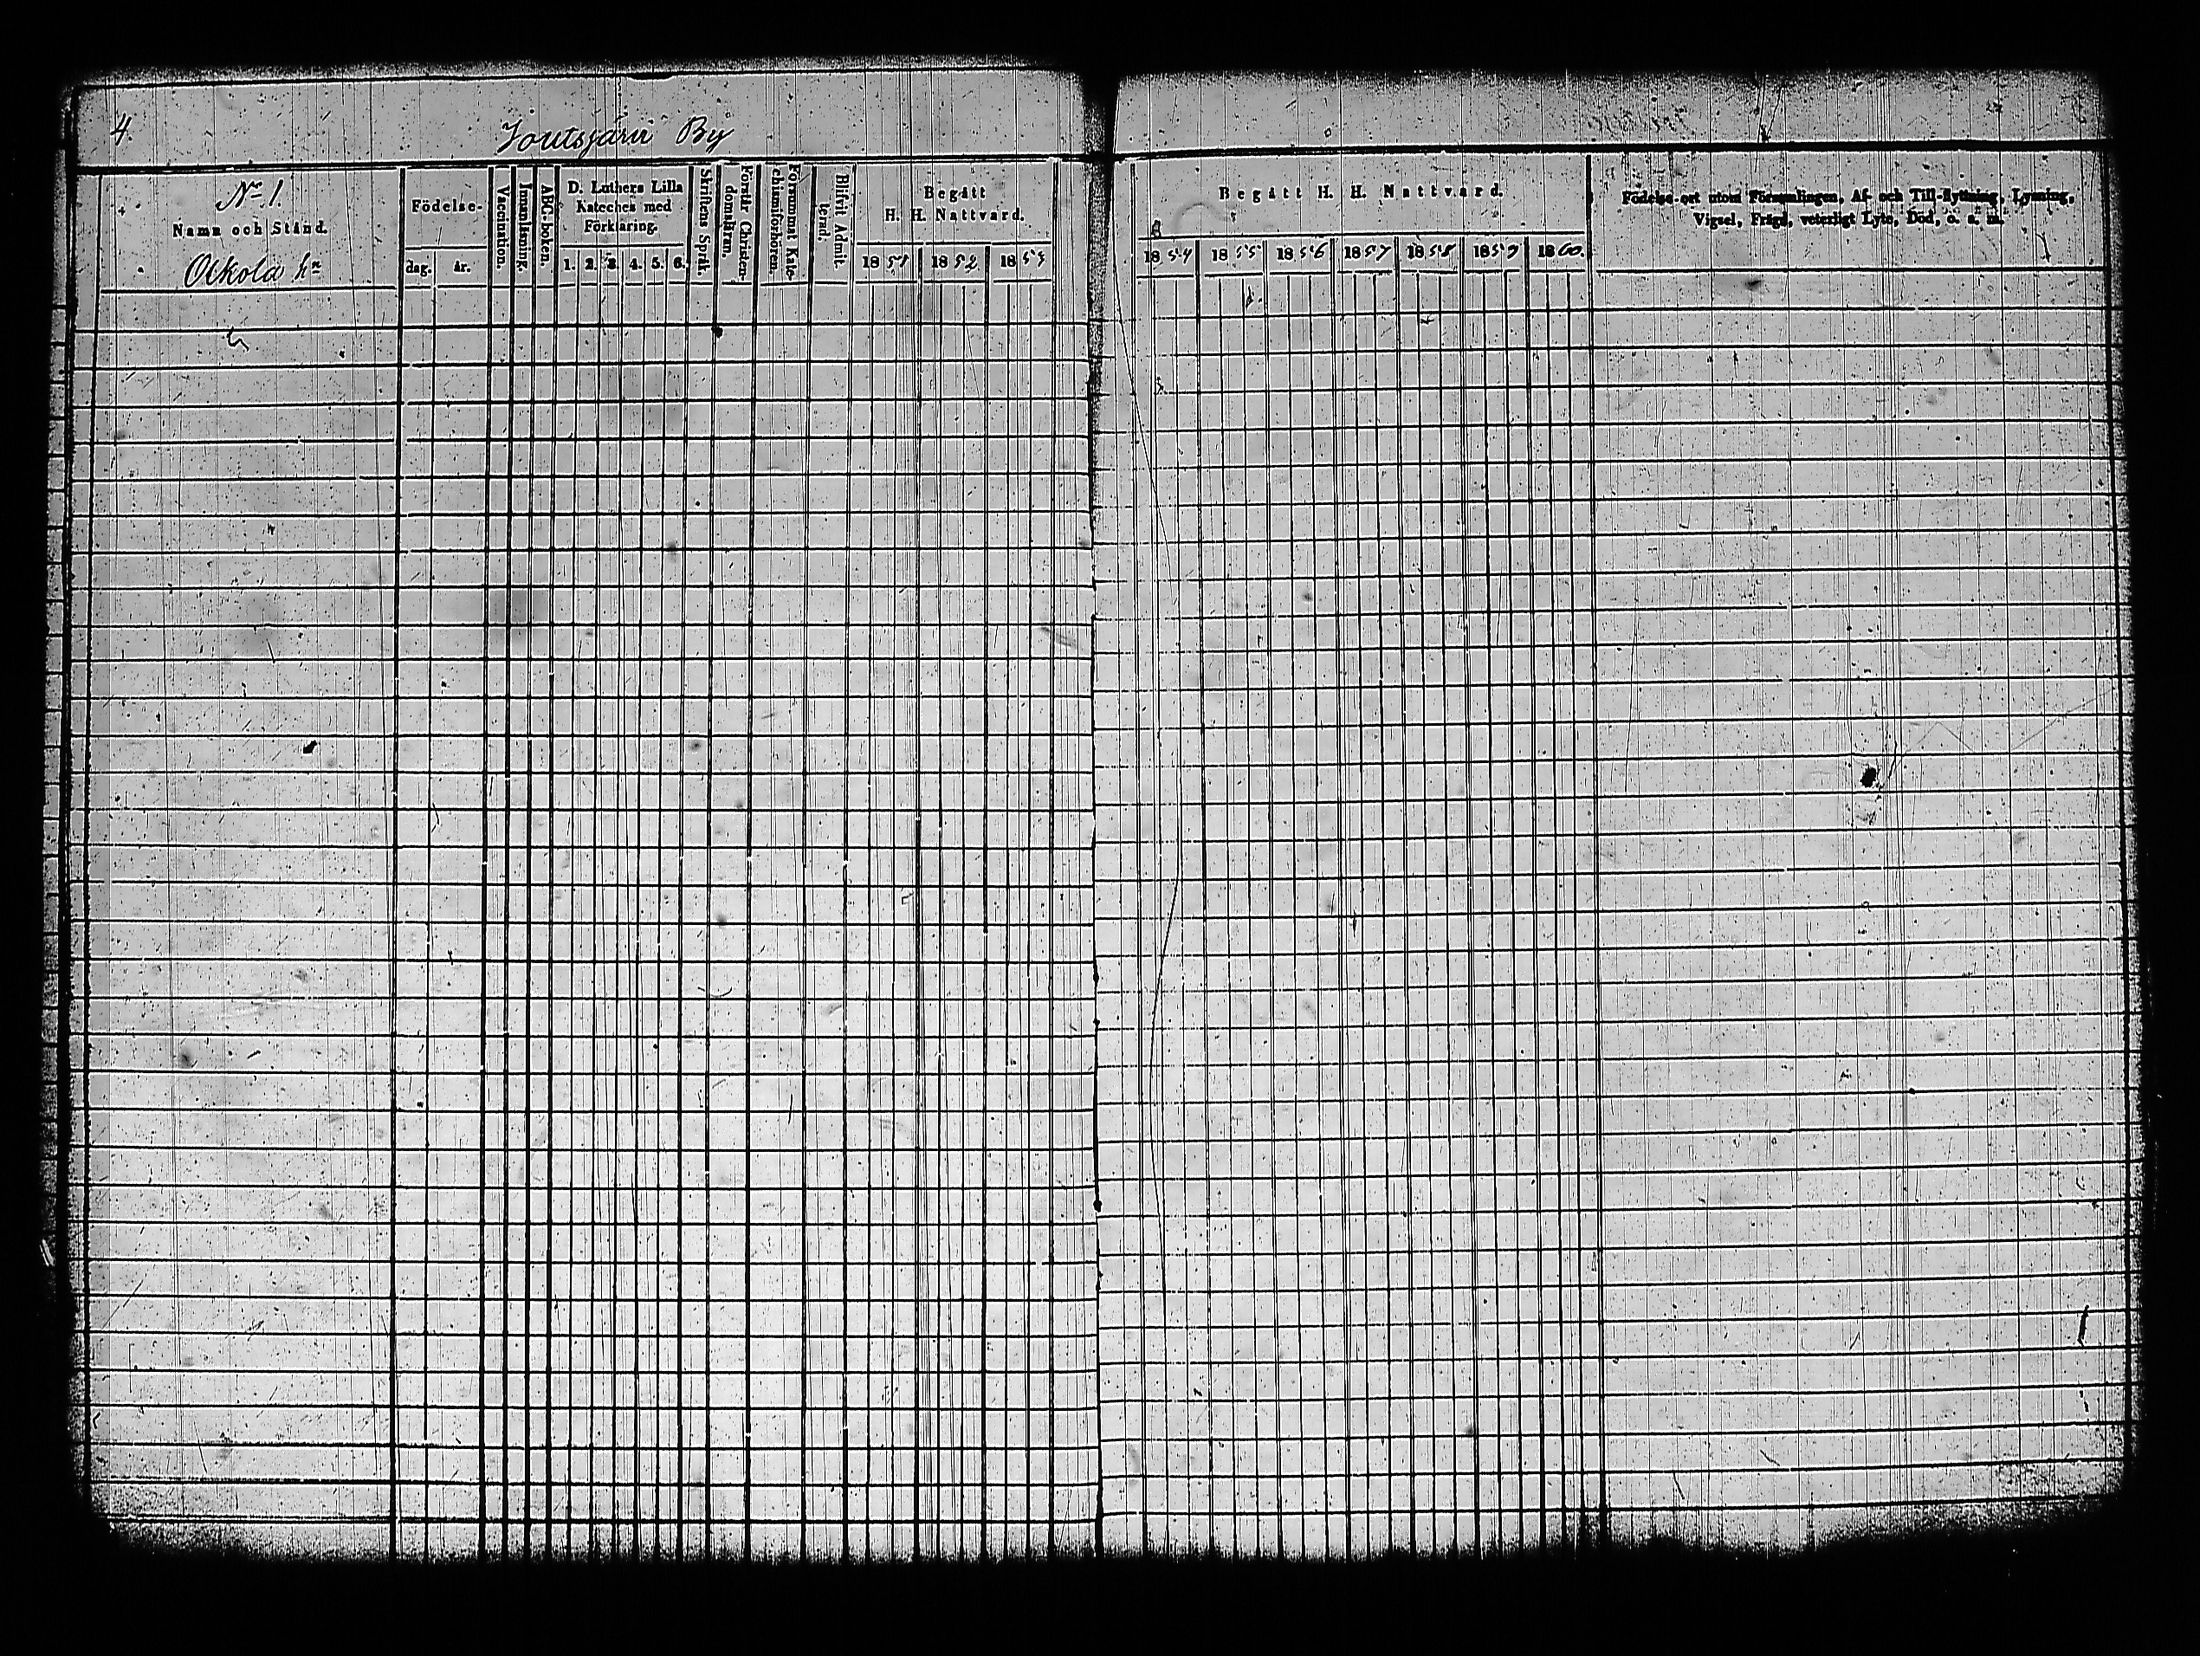 4.
Joutsjärvi By
No 1.
Namn och Stånd.
Olkola hn
Födelse-
dag. år.
Vaccination.
Innanläsning.
ABC-boken.
D. Luthers Lilla
Kateches med
Förklaring.
1. 2. 3. 4. 5. 6.
Skriftens Språk.
Förstår Christen-
domsläran.
Försummat Kate-
chismiförhören.
Blifvit Admit-
terad.
Begått
H. H. Nattvard.
1851 1852 1853
Begått H. H. Nattvard.
1854 1855 1856 1857 1858 1859 1860.
Födelse-ort utom Församlingen, Af- och Till-flyttning, Lysning,
Vigsel, Frägd, veterligt Lyte, Död, o. s. m.